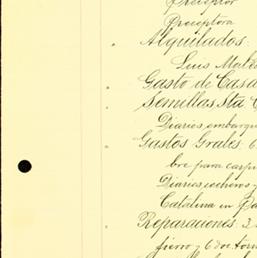 Preceptor
Preceptora
Alquilados.
Luis
Gasto de Casa
Semillas Sta C
Diarios, embarqu
Gastos Grales. 6
bre para carp
Diarios, cocheros y
Catalina en
Reparaciones. 3
fierro y 6 doc. torn